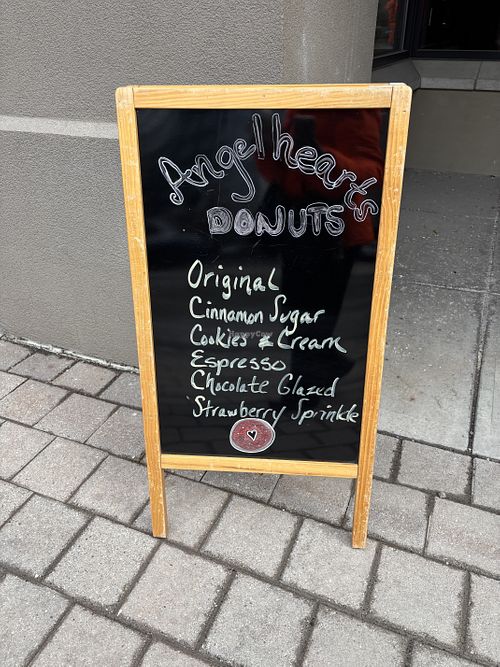 Angelhearts
DONUTS
Original
Cinnamon Sugar
Cookies & Cream
Espresso
Chocolate Glazed
Strawberry Sprinkle
HappyCow